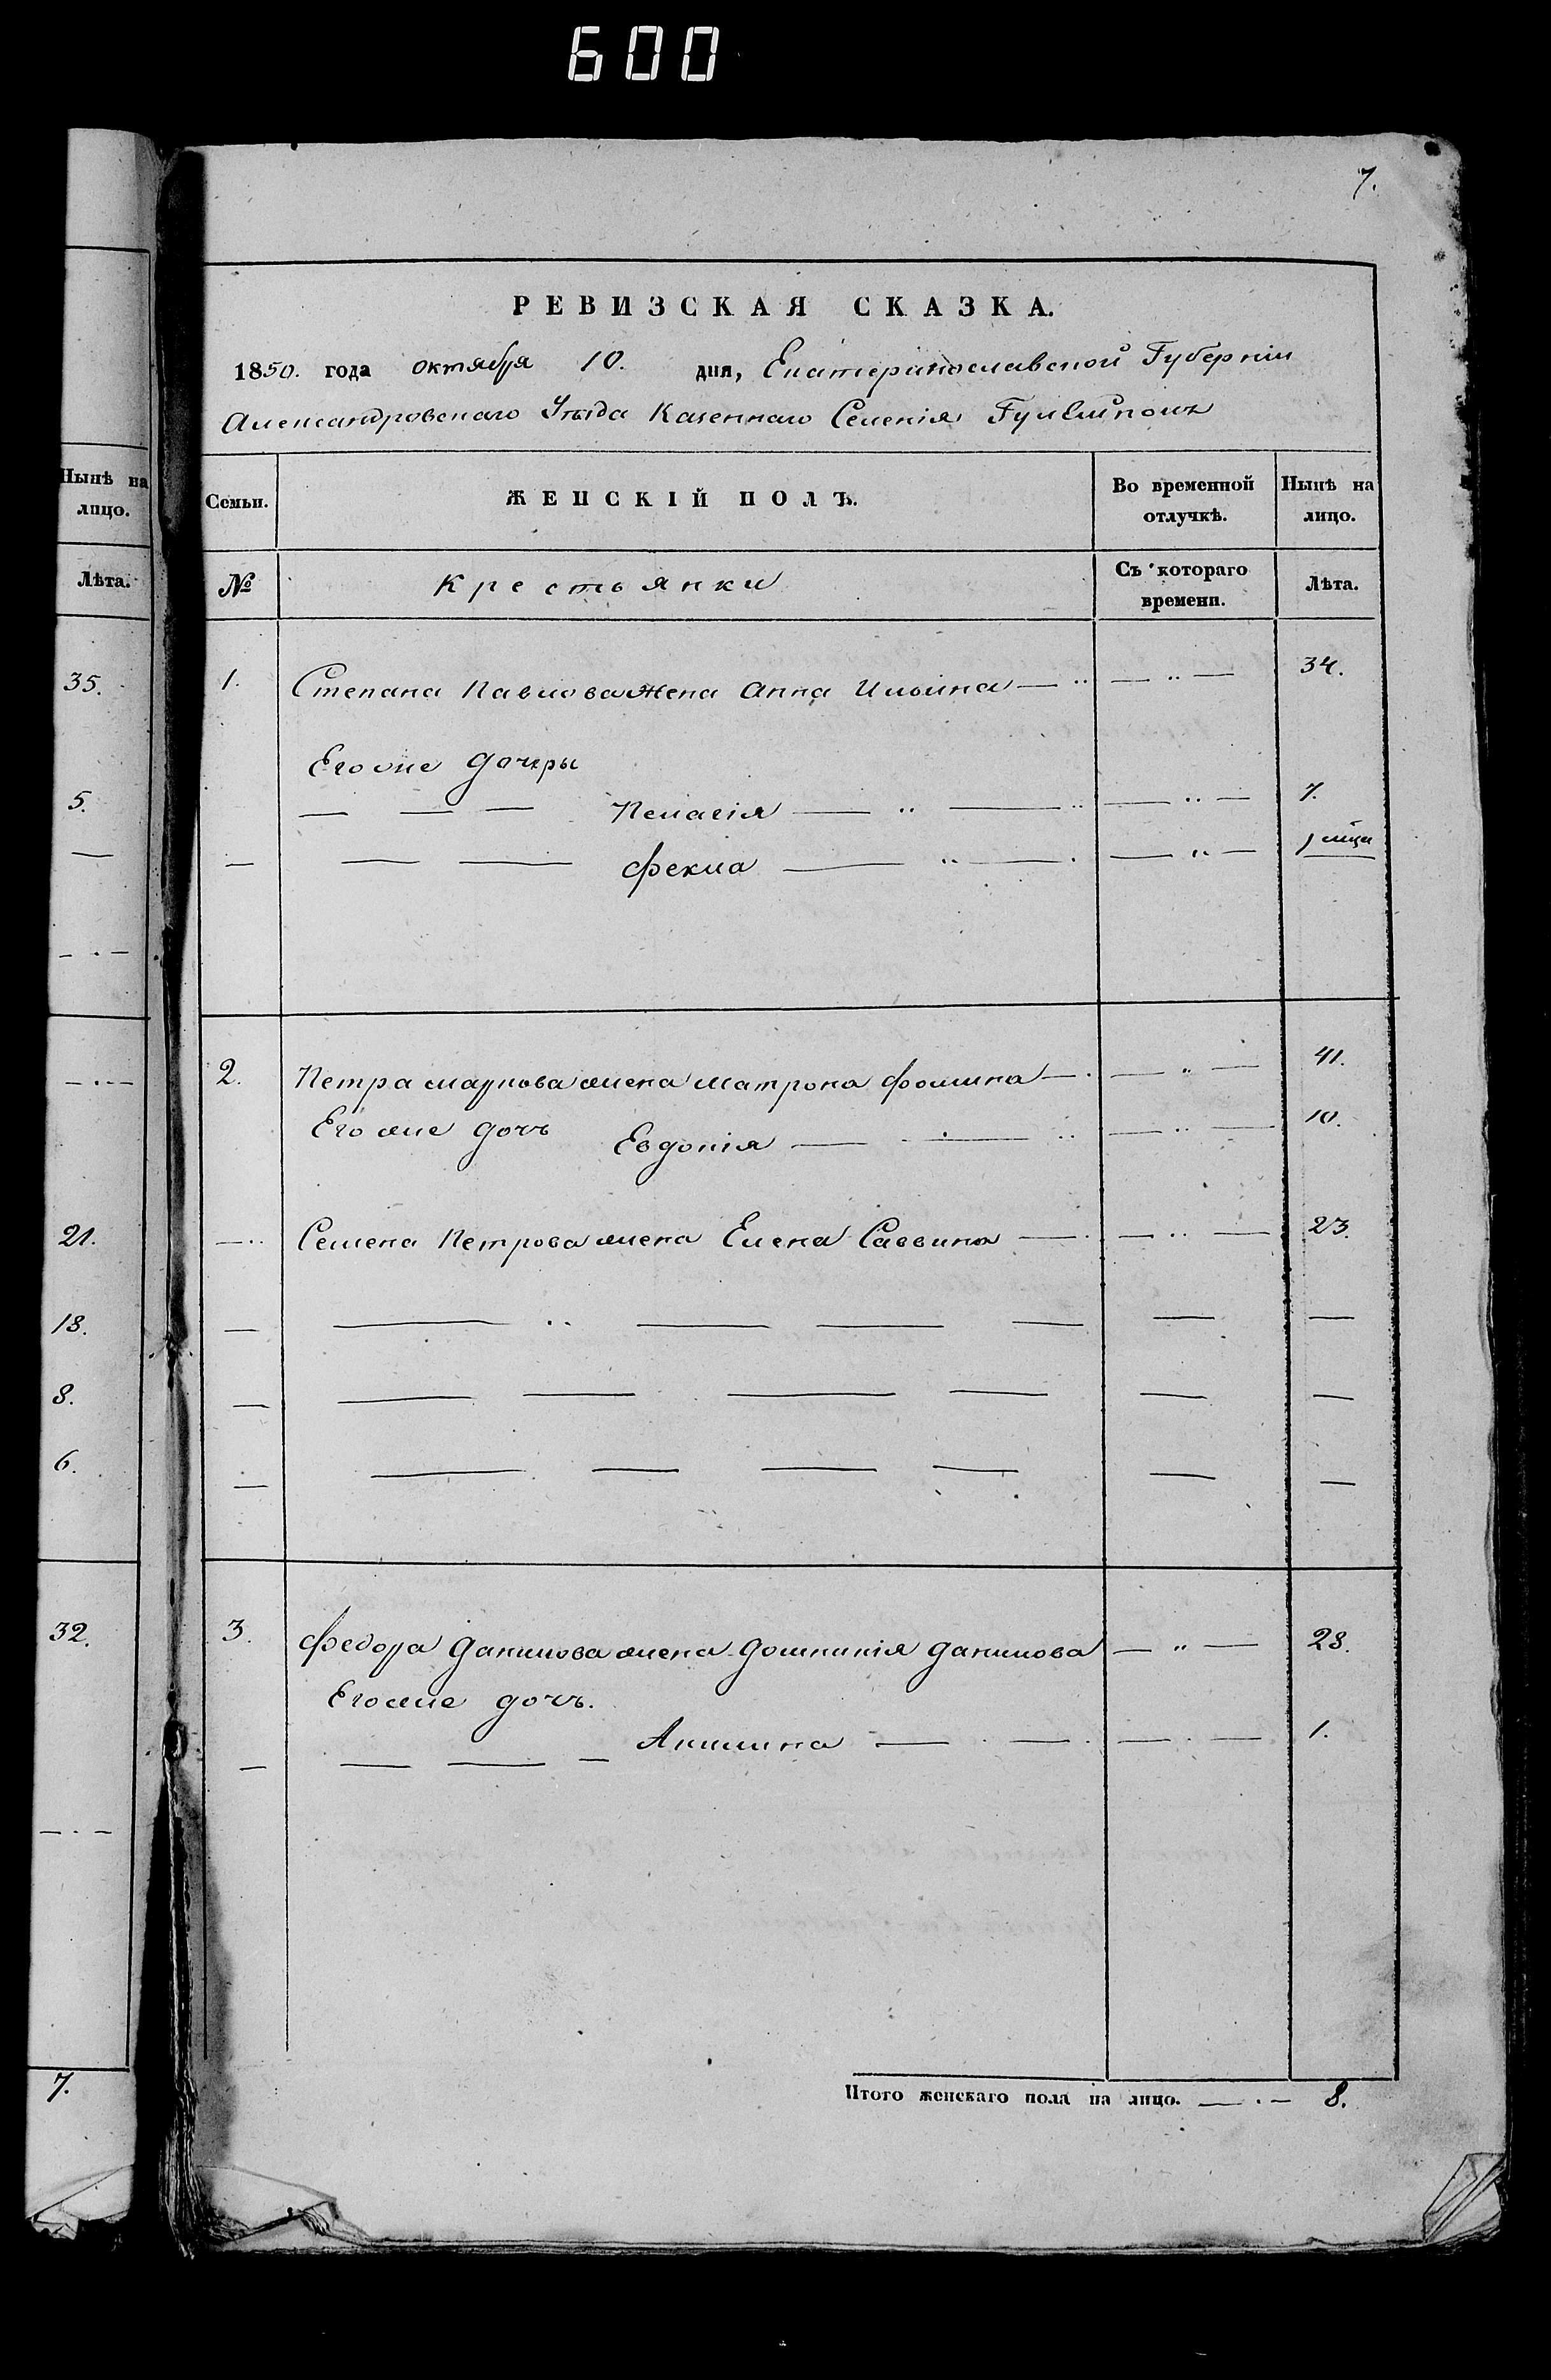 600
7.
РЕВИЗСКАЯ СКАЗКА.
1850. года октября 10. дня, Екатеринославской Губерніи
Александровскаго Уѣзда Казеннаго Селенія Гуляйполѣ
Нынѣ на лицо.
Лѣта.
35.
5.
21.
18.
8.
6.
32.
7.
Семьи. ЖЕНСКІЙ ПОЛЪ. Во временной отлучкѣ. Нынѣ на лицо.
№ Крестьянки Съ котораго времени. Лѣта.
1. Степана Павлова жена Анна Ильина 34.
Его же дочери
Пелагія 7.
Фекла
2. Петра Маркова жена Матрона Фомина 41.
Его же дочь Евдокія 10.
Семена Петрова жена Елена Саввина 23.
3. Федора Данилова жена Домникія Данилова 28.
Его же дочь.
Акилина 1.
Итого женскаго пола на лицо. 8.